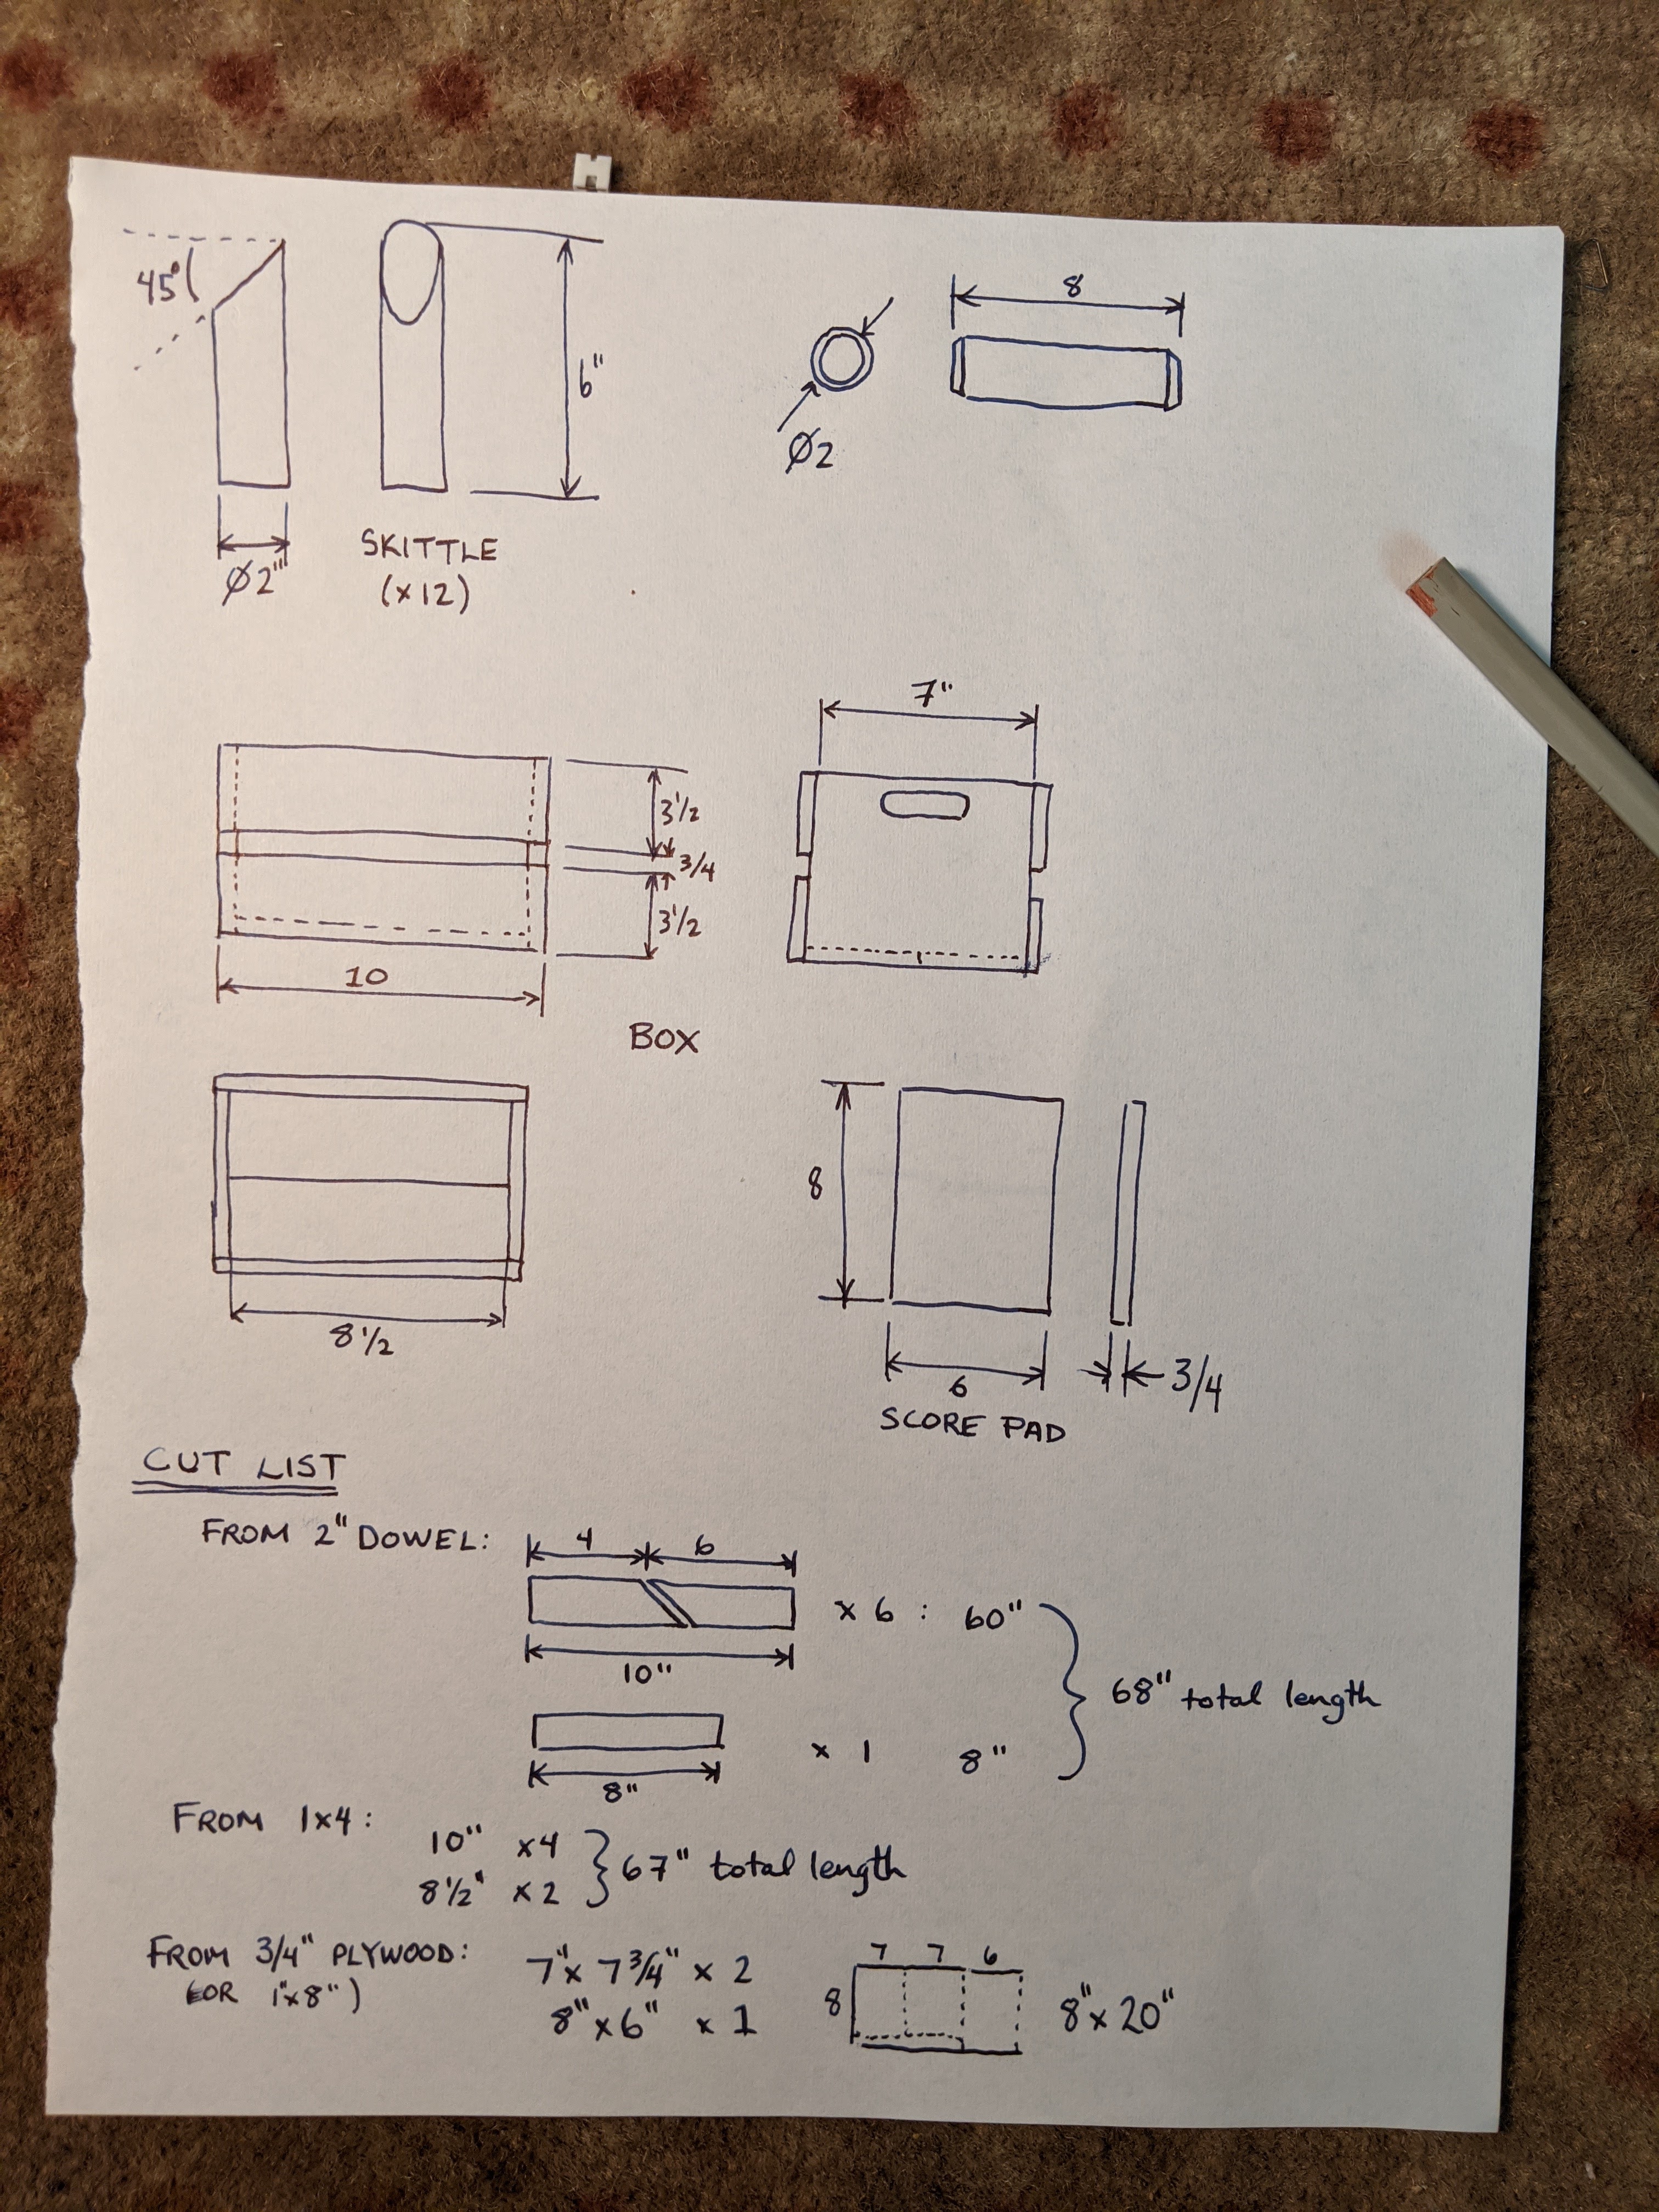 45°
6"
Ø2"
SKITTLE
(x12)
8
Ø2
3 1/2
3/4
3 1/2
10
7"
BOX
8 1/2
8
6
3/4
SCORE PAD
CUT LIST
FROM 2" DOWEL:
4 6
10"
x 6 : 60"
8"
x 1 8"
68" total length
FROM 1x4:
10" x4
8 1/2" x 2
67" total length
FROM 3/4" PLYWOOD:
(OR 1"x8")
7"x 7 3/4" x 2
8"x6" x 1
7 7 6
8
8"x 20"